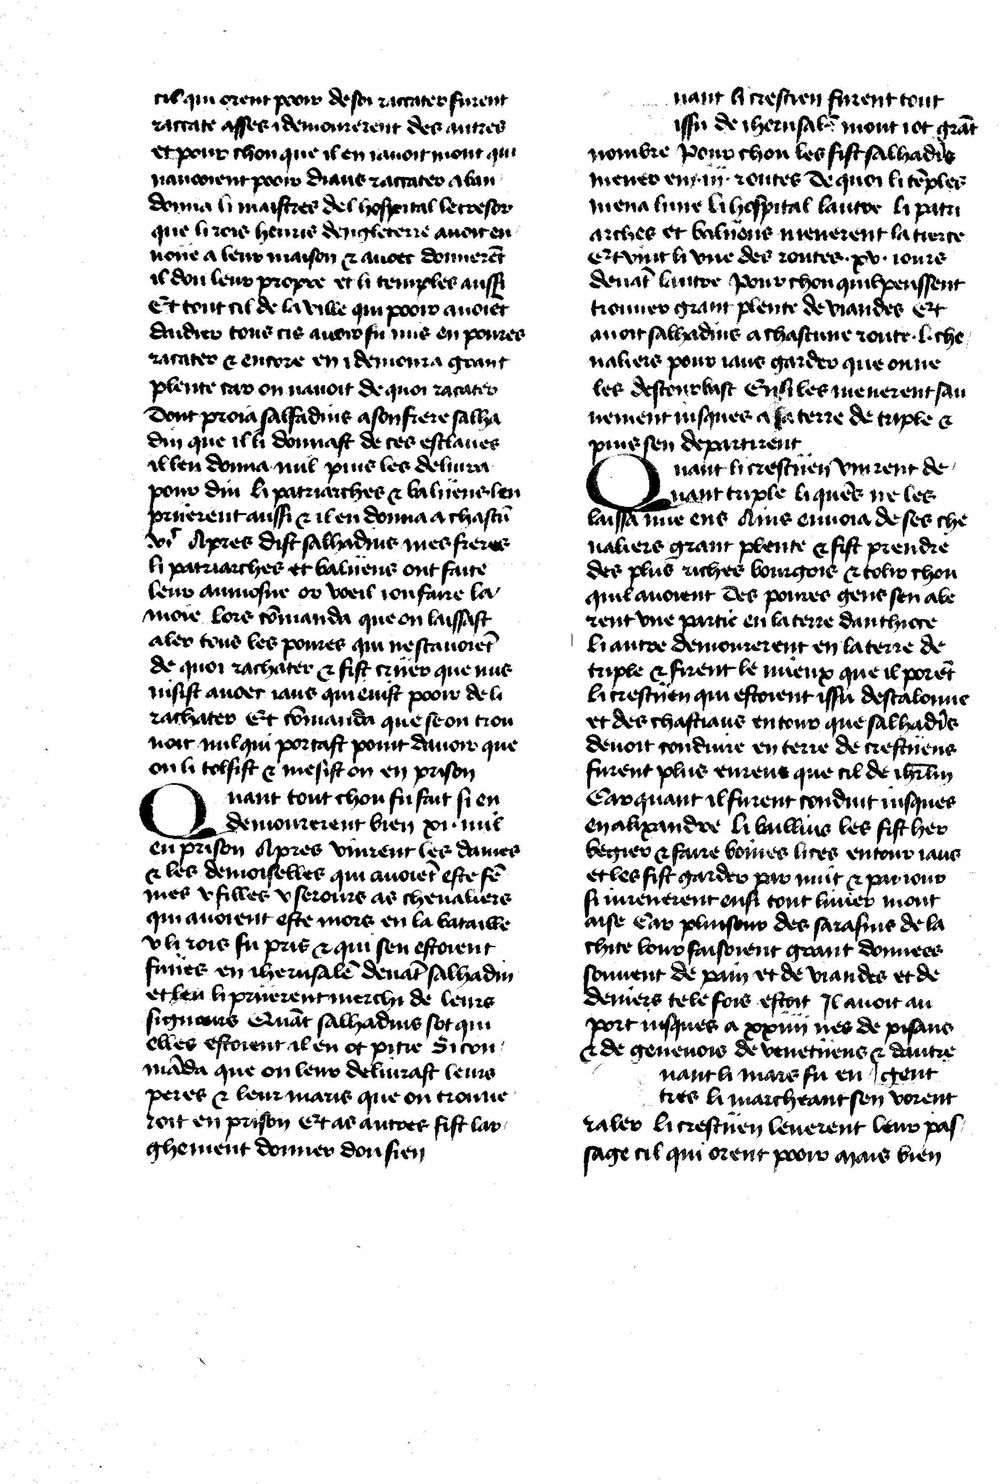 cil qui orent pooir de soi raccater furent
raccate asses i demourerent des autres
et pour chou que il en iauoit mout qui
nauoient pooir diaus raccater aban
donna li maistres del hospital le tresor
que li rois henris dengleterre auoit en
uoiie a leur maison & auoec donnerēt
il dou leur propre et li temples aussi
Et tout cil de la ville qui pooir auoiēt
daidier tous cis auoir fu mis en poures
racater & encore en i demoura grant
plente car on nauoit de quoi racater
Dont proia salfadins a son frere salha
din que il li donnast de ces esclaues
il len donna mil puis les deliura
pour diu li patriarches & baliiens len
priierent aussi & il en donna a chascū
vic Apres dist salhadins mes freres
li patriarches et baliiens ont faite
leur aumosne or voeil iou faire la
moie lors cōmanda que on laissast
aler tous les poures qui nestauoiēt
de quoi rachater & fist criier que nus
nisist auoec iaus qui euist pooir de li
rachater Et cōmanda que se on trou
uoit nul qui portast point dauoir que
on li tolsist & mesist on en prison
Quant tout chou fu fait si en
demourerent bien xi. mil
en prison Apres vinrent les dames
& les demoiselles qui auoiēt este fē
mes v filles v serours as cheualiers
qui auoient este mors en la bataille
v li rois fu pris & qui sen estoient
fuiies en iherusalē deuāt salhadin
et leu li priierent merchi de leurs
signours Quāt salhadins sot qui
elles estoient il en ot pitie Si con
māda que on leur deliurast leurs
peres & leur maris que on trouue
roit en prison Et as autres fist lar
ghement donner dou sien
uant li crestien furent tout
issu de iherusalē mout i ot grāt
nombre Pour chou les fist salhadīs
mener en .iii. routes De quoi li tēples
mena lune li hospital lautre li patri
arches et baliiens menerent la tierce
Et vint li vne des routes .xv. iours
deuāt lautre Pour chou quil peussent
trouuer grant plente de viandes Et
auoit salhadins a chascune route .l. che
ualiers pour iaus garder que on ne
les destourbast Ensi les menerent sau
uement iusques a la terre de triple &
puis sen departirent
Quant li crestiien vinrent de
uant triple li quēs ne les
laissa mie ens Ains enuoia de ses che
ualiers grant plente & fist prendre
des plus riches bourgois & tolir chou
quil auoient Des poures gens sen ale
rent vne partie en la terre danthioce
li autre demourerent en la terre de
triple & firent le mieux que il porēt
li crestiien qui estoient issu descalonne
et des chastiaus entour que salhadīs
deuoit conduire en terre de crestiiens
furent plus eureus que cil de ihrlm
Car quant il furent conduit iusques
en alixandre li baillius les fist her
begier & faire bonnes lices entour iaus
et les fist garder par nuit & par iour
si iuernerent ensi tout liuier mout
aise Car pluisour des sarasins de la
chite lour faisoient grant donnees
souuent de pain et de viandes et de
deniers tele fois estoit Il auoit au
port iusques a xxxiiii nes de pisans
& de geneuois de venetiiens & dautre
uant li mars fu en gent
tres li marcheant sen vorent
raler li crestiien leuerent leur pas
sage cil qui orent pooir Mais bien